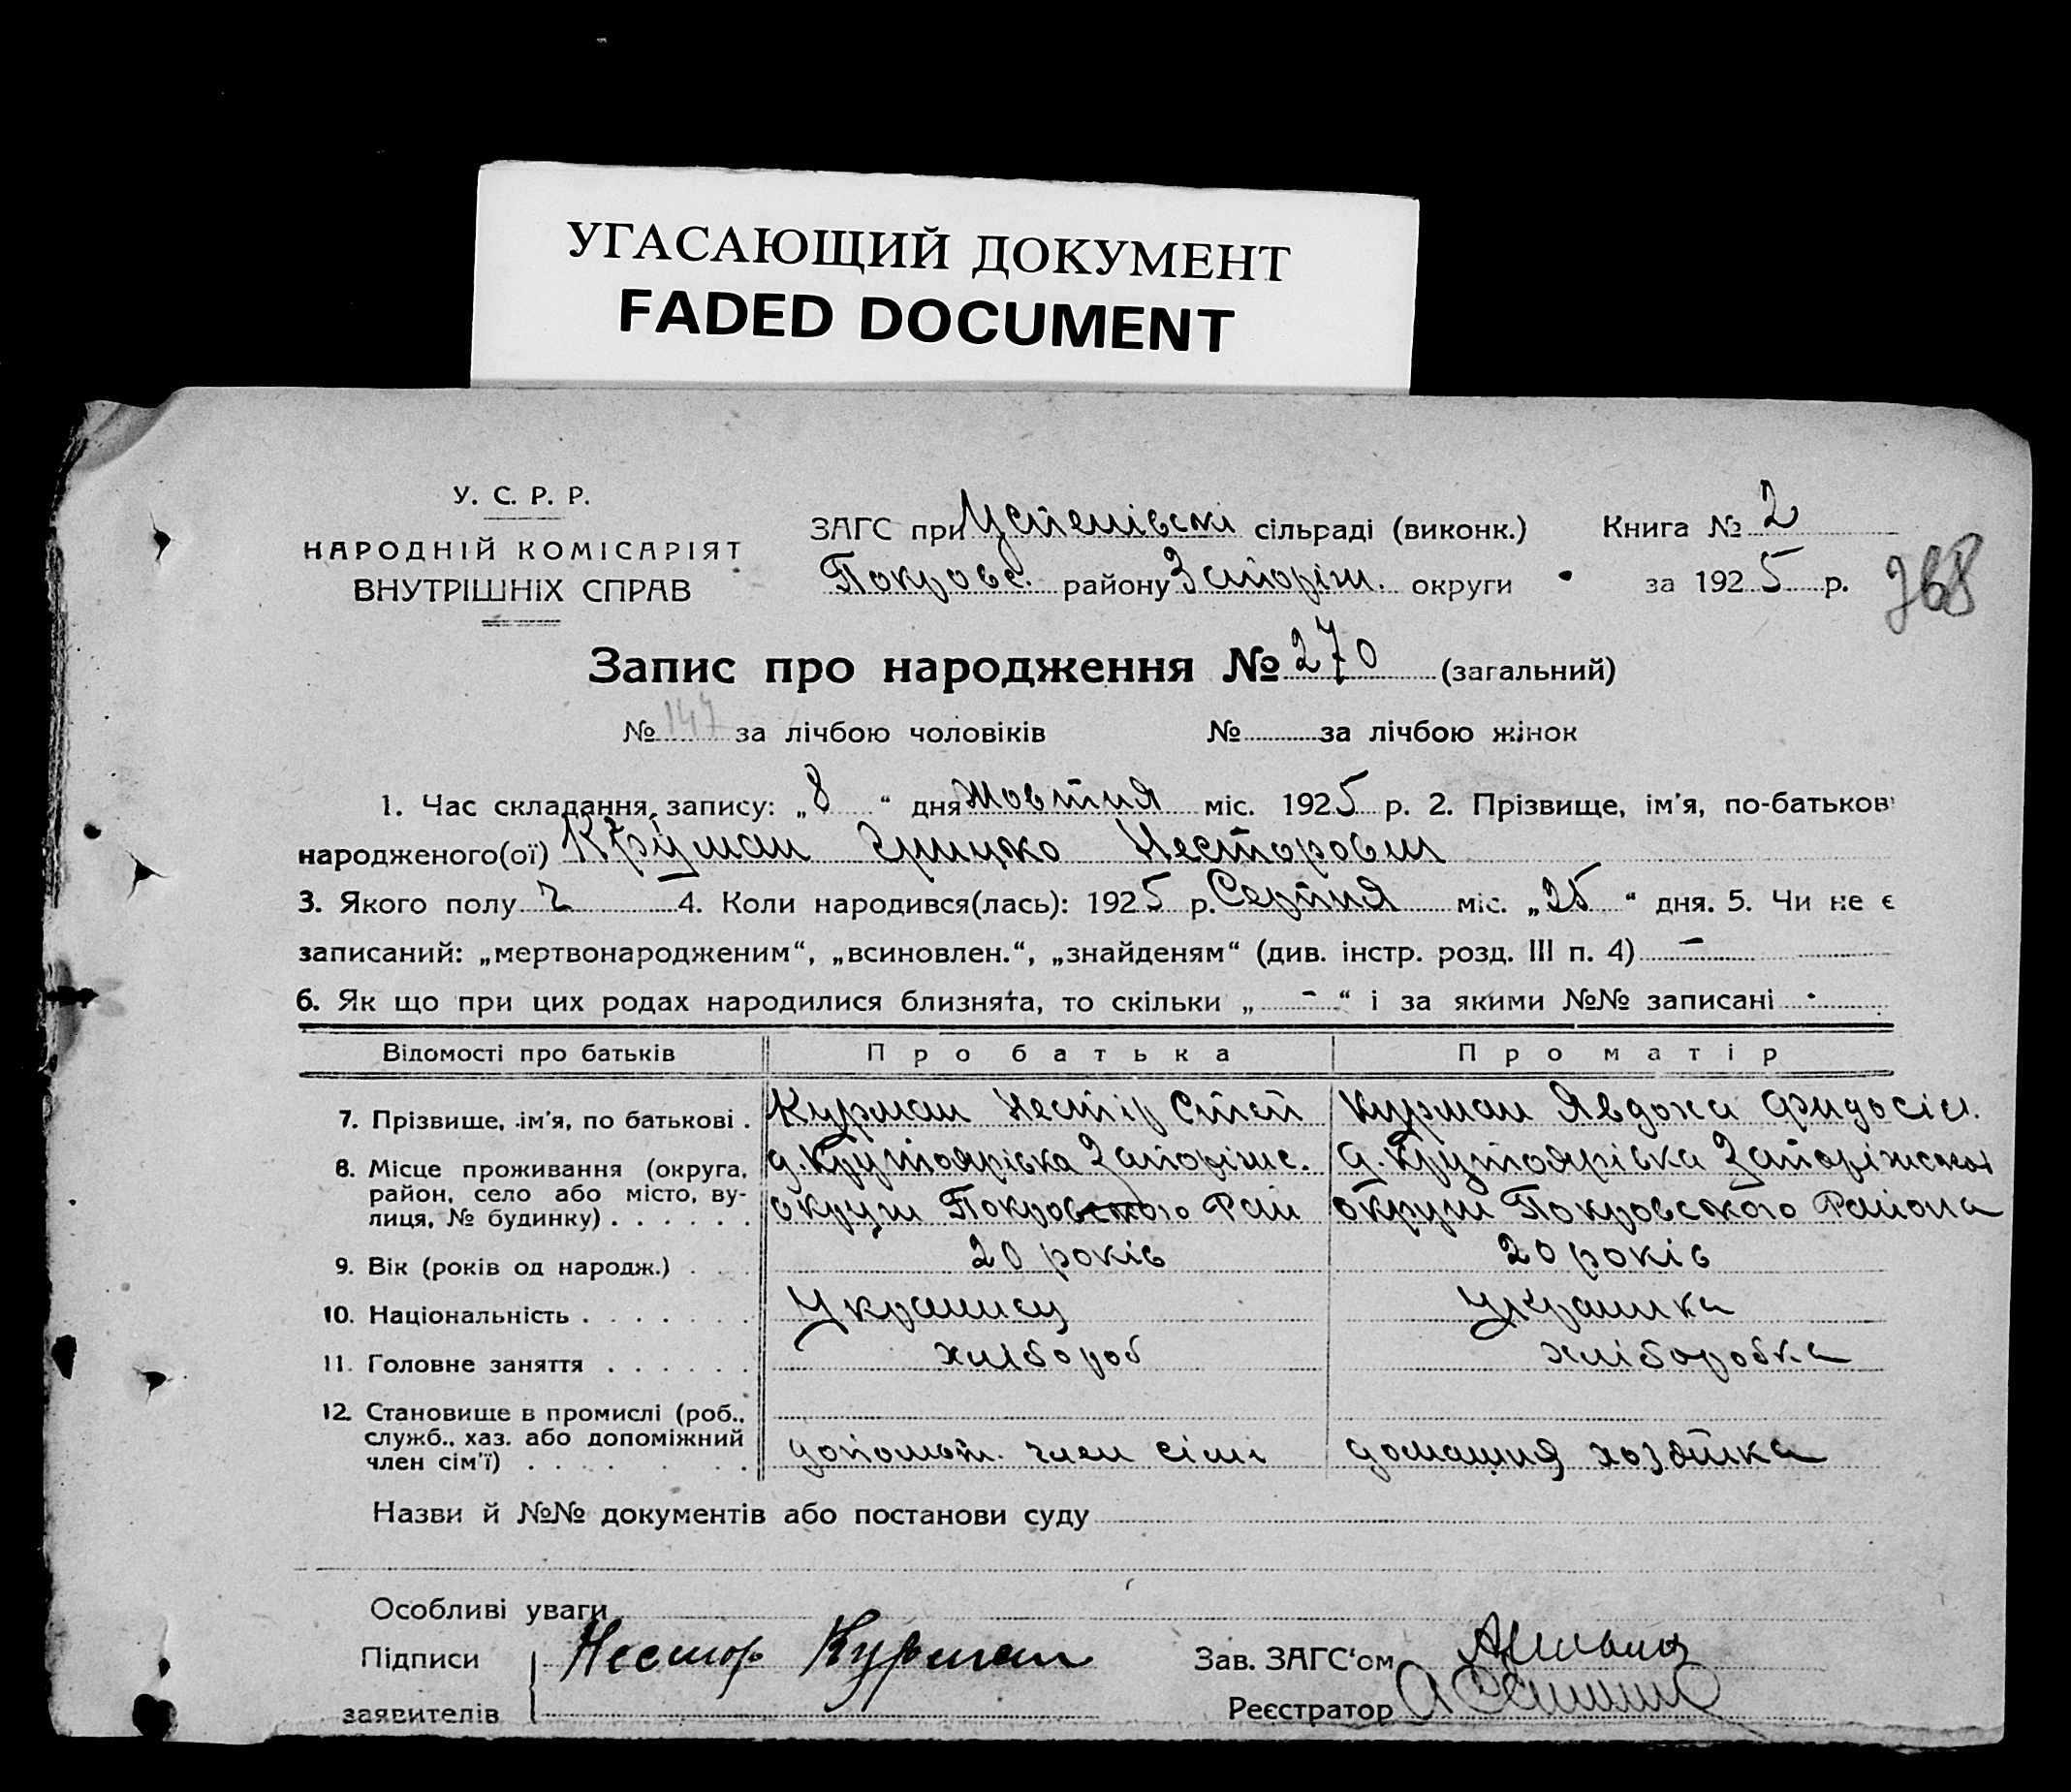 УГАСАЮЩИЙ ДОКУМЕНТ
FADED DOCUMENT
У. С. Р. Р.
НАРОДНІЙ КОМІСАРІЯТ
ВНУТРІШНІХ СПРАВ
ЗАГС при Успенівскі сільраді (виконк.) Книга № 2
Покровс. району Запоріж. округи за 1925 р.
368
Запис про народження № 270 (загальний)
№ 147 за лічбою чоловіків № за лічбою жінок
1. Час складання запису: „8“ дня жовтня міс. 1925 р. 2. Прізвище, ім'я, по-батькові
народженого(ої) Курман Грицко Несторович
3. Якого полу ч 4. Коли народився(лась): 1925 р. Серпня міс. „25“ дня. 5. Чи не є
записаний: „мертвонародженим“, „всиновлен.“, „знайденям“ (див. інстр. розд. III п. 4) -
6. Як що при цих родах народилися близнята, то скільки „ - “ і за якими №№ записані
Відомості про батьків Про батька Про матір
7. Прізвище, ім'я, по батькові . Курман Нестір Степ Курман Явдоха Фидосіи.
8. Місце проживання (округа, д. Крутоярівка Запоріжс. д. Крутоярівка Запоріжскої
район, село або місто, ву-
лиця, № будинку) . . . . . . округи Покровского Рай округи Покровского Района
9. Вік (років од народж.) . . . 20 років 20 років
10. Національність . . . . . . . Украинец Украинка
11. Головне заняття . . . . . . хлібороб хліборобка
12. Становище в промислі (роб.,
служб., хаз. або допоміжний
член сім'ї) . . . . . . . допомат. член сімі домашня хозяйка
Назви й №№ документів або постанови суду
Особливі уваги
Підписи Нестор Курман Зав. ЗАГС'ом
заявителів Реєстратор